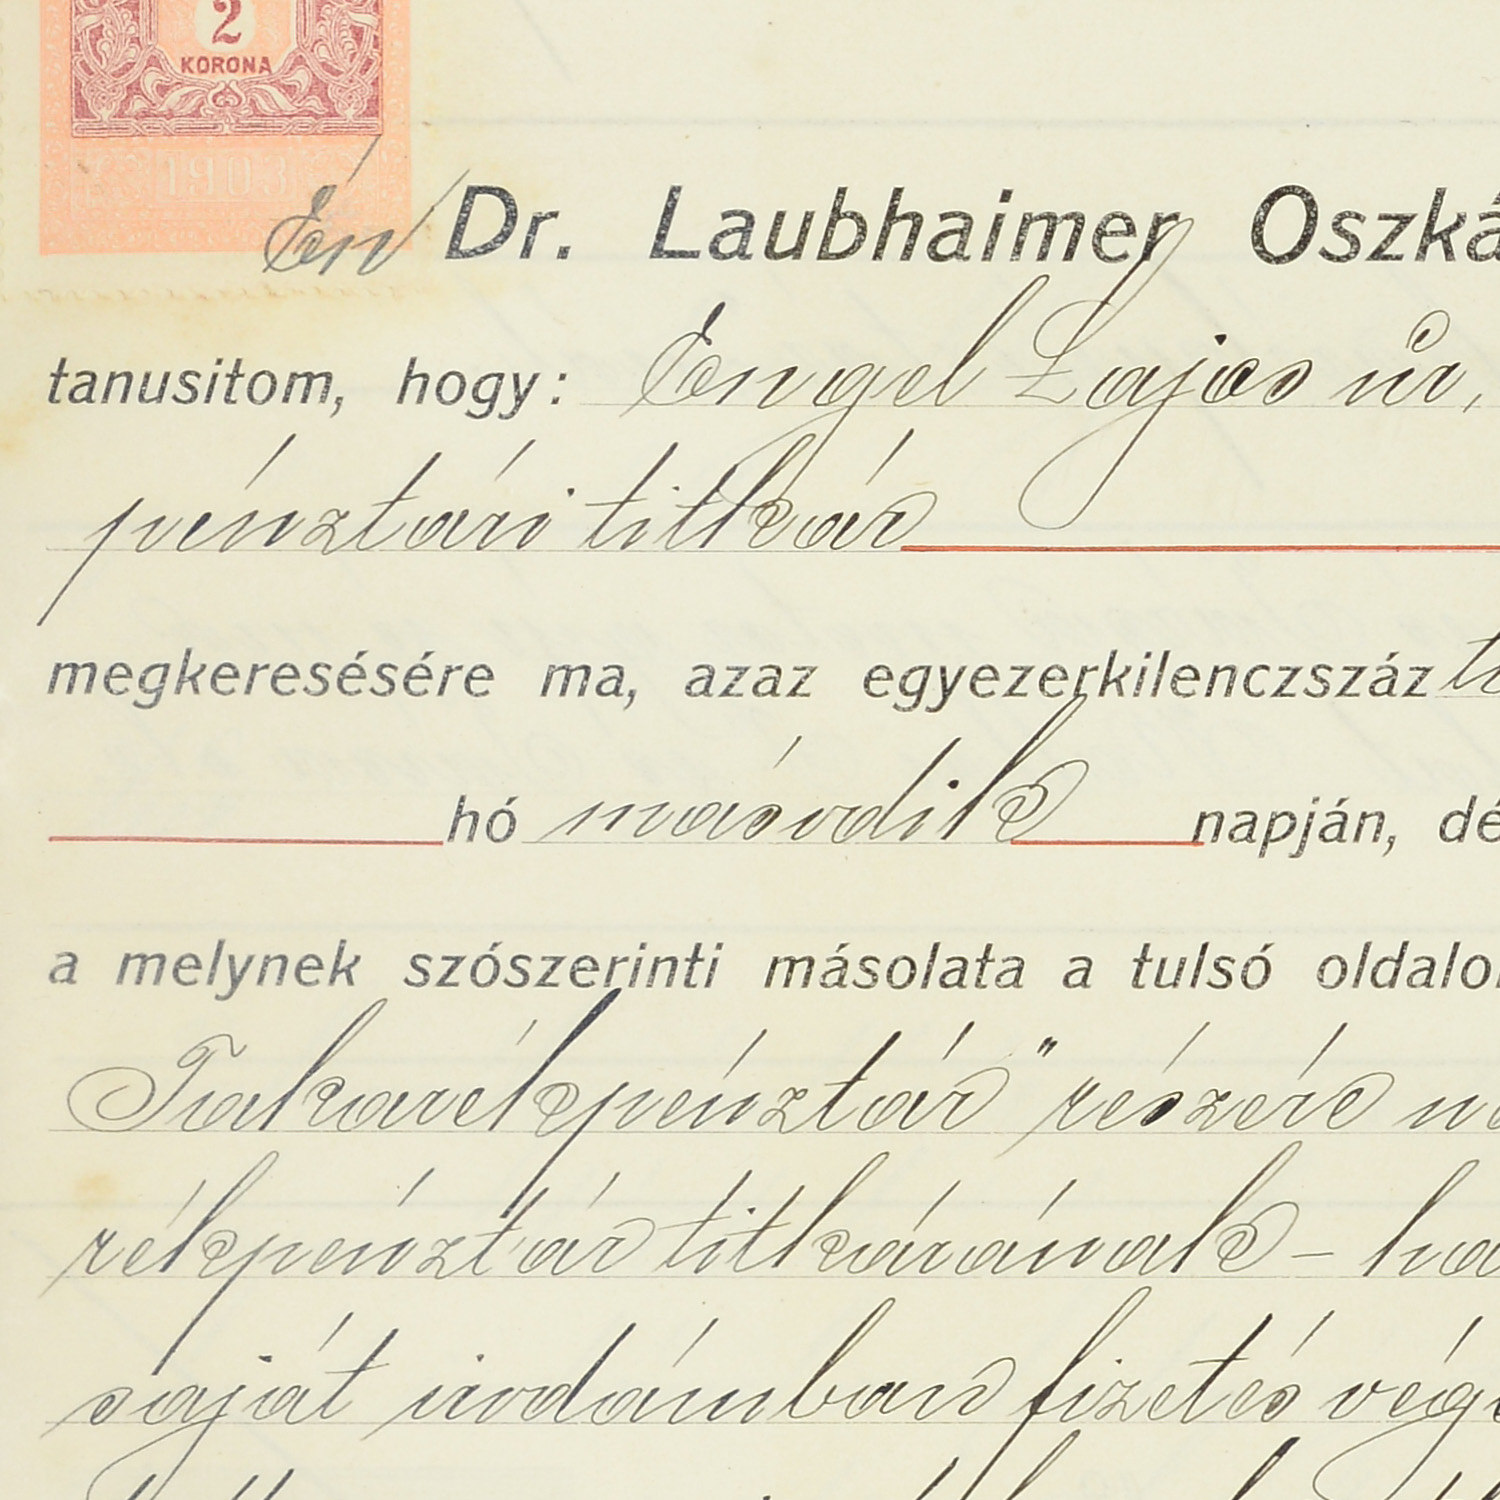 2
KORONA
1903
Én Dr. Laubhaimer Oszká
tanusitom, hogy: Engel Lajos úr,
pénztári titkár
megkeresésére ma, azaz egyezerkilenczszáz
hó második napján, dé
a melynek szószerinti másolata a tulsó oldalon
Takarékpénztár" részére
rékpénztár titkárának –
saját irodámban fizetés vég